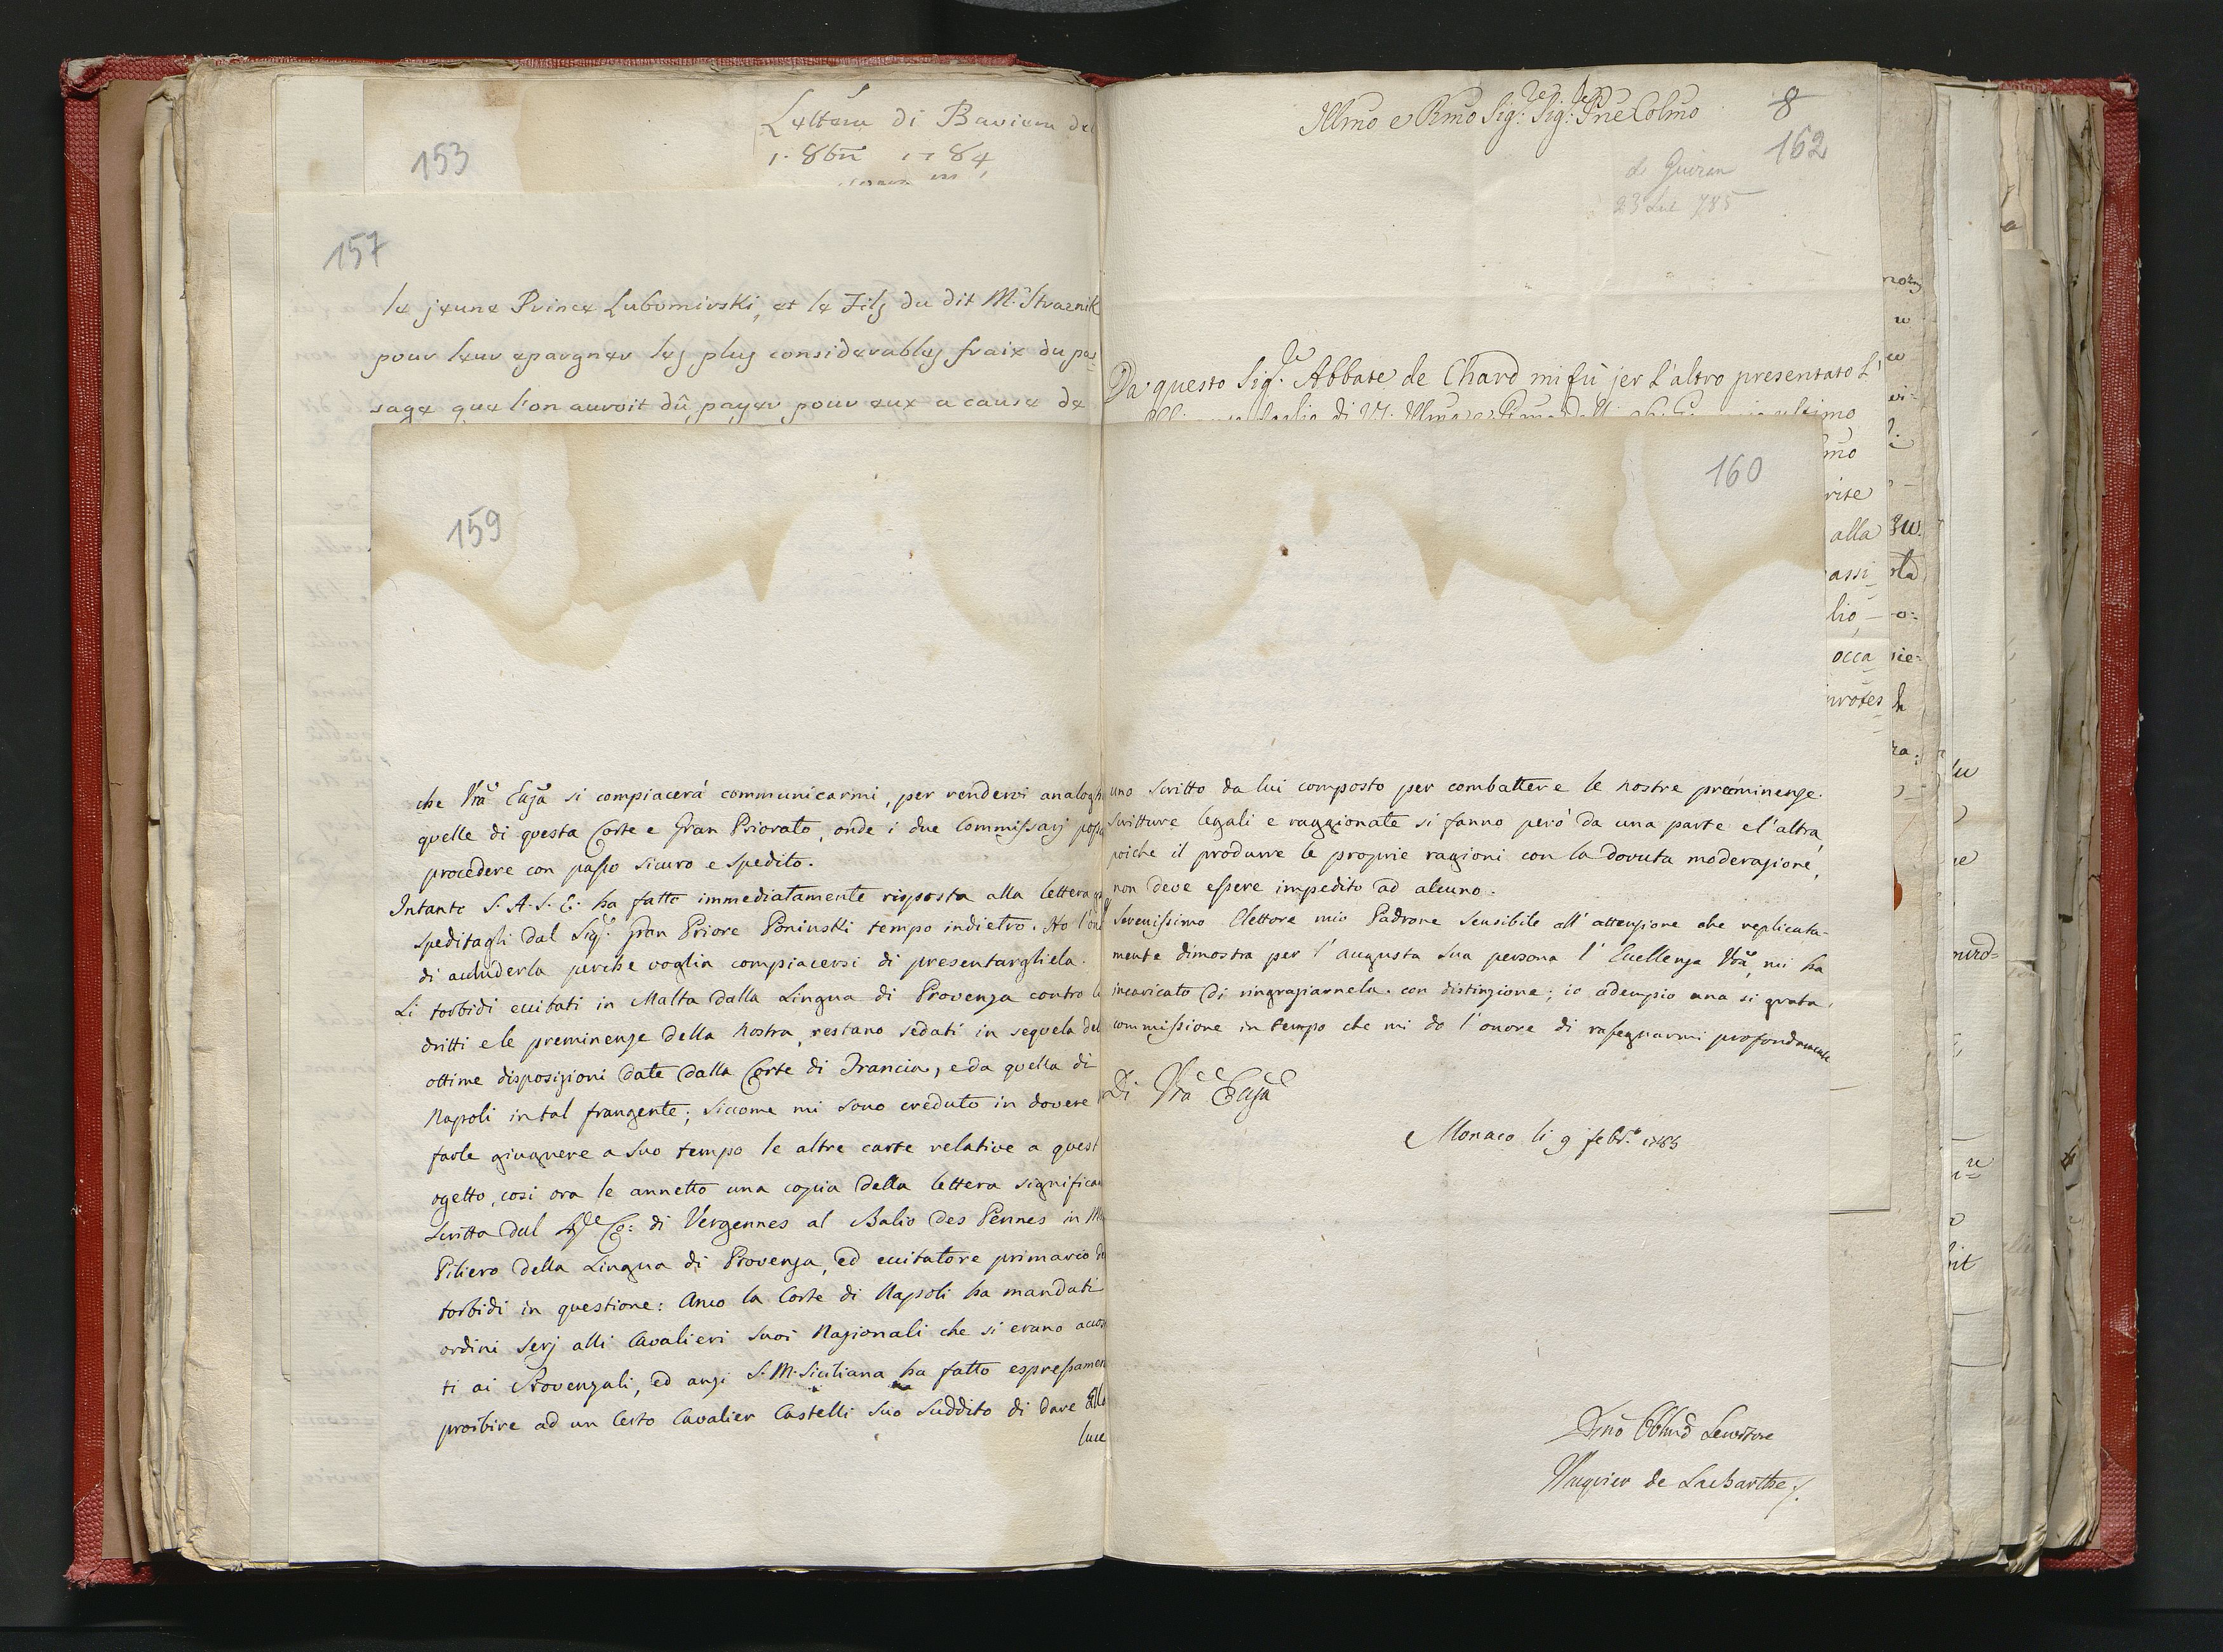 153
Lettera di Baviera del
1. 8bre 1784
157
le jeune Prince Lubomirski, et le Fils du dit M. Straznik
pour leur epargner les plus considerables fraix du pas-
sage que l'on auroit dû payer pour eux a cause de
159
che Vra Ecza si compiacerà communicarmi, per rendervi analoghe
quelle di questa Corte e Gran Priorato, onde i due Commissarj possa
procedere con passo sicuro e spedito.
Intanto S. A. S. E. ha fatto immediatamente risposta alla lettera
speditagli dal Sigr. Gran Priore Poninski tempo indietro. Ho l'ono
di accluderla perche voglia compiacersi di presentargliela.
Li torbidi eccitati in Malta dalla Lingua di Provenza contro li
dritti e le preminenze della nostra, restano sedati in sequela del
ottime disposizioni date dalla Corte di Francia, e da quella di
Napoli in tal frangente; siccome mi sono creduto in dovere
farle giugnere a suo tempo le altre carte relative a quest
ogetto, cosi ora le annetto una copia della lettera significan
scritta dal Sr. Co: di Vergennes al Balio des Pennes in
Piliero della Lingua di Provenza, ed eccitatore primario de
torbidi in questione: Anco la Corte di Napoli ha mandati
ordini serj alli Cavalieri suoi Nazionali che si erano accos
ti ai Provenzali, ed anzi S. M. Siciliana ha fatto espressamen
proibire ad un certo Cavalier Castelli suo suddito di dare alla
luce
Illmo e Rmo Sigre Sigre Pne Colmo
8
162
de Guiran
23 785
Da questo Sigre Abbate de Chard mi fù jer l'altro presentato l'
foglio di VS. Illma e Rma ultimo
mo
rite
alla
assi
lio
occa
protes
160
uno scritto da lui composto per combattere le nostre preminenze.
Scritture legali e raggionate si fanno però da una parte e l'altra,
poiche il produrre le proprie ragioni con la dovuta moderazione,
non deve essere impedito ad alcuno.
Serenissimo Elettore mio Padrone sensibile all'attenzione che replicata-
mente dimostra per l'augusta sua persona l'Eccellenza Vra, mi ha
incaricato di ringraziarnela con distinzione; io adempio una si grata
commissione in tempo che mi do l'onore di rassegnarmi profondamente
Di Vra Ecza
Monaco li 9 febro 1785
Dmo Obbmo Servitore
de Lacharthe